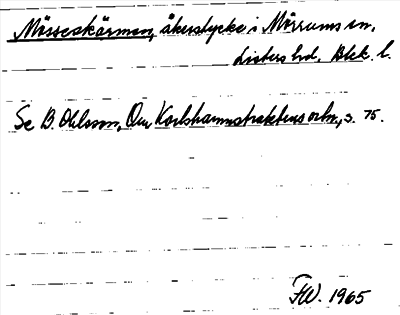 Mösseskärman, åkerstycke i Mörrums sn,
Listers hd, Blek. l.
Se B. Ohlsson, Om Karlshamnstraktens ortn, s. 75.
FW. 1965